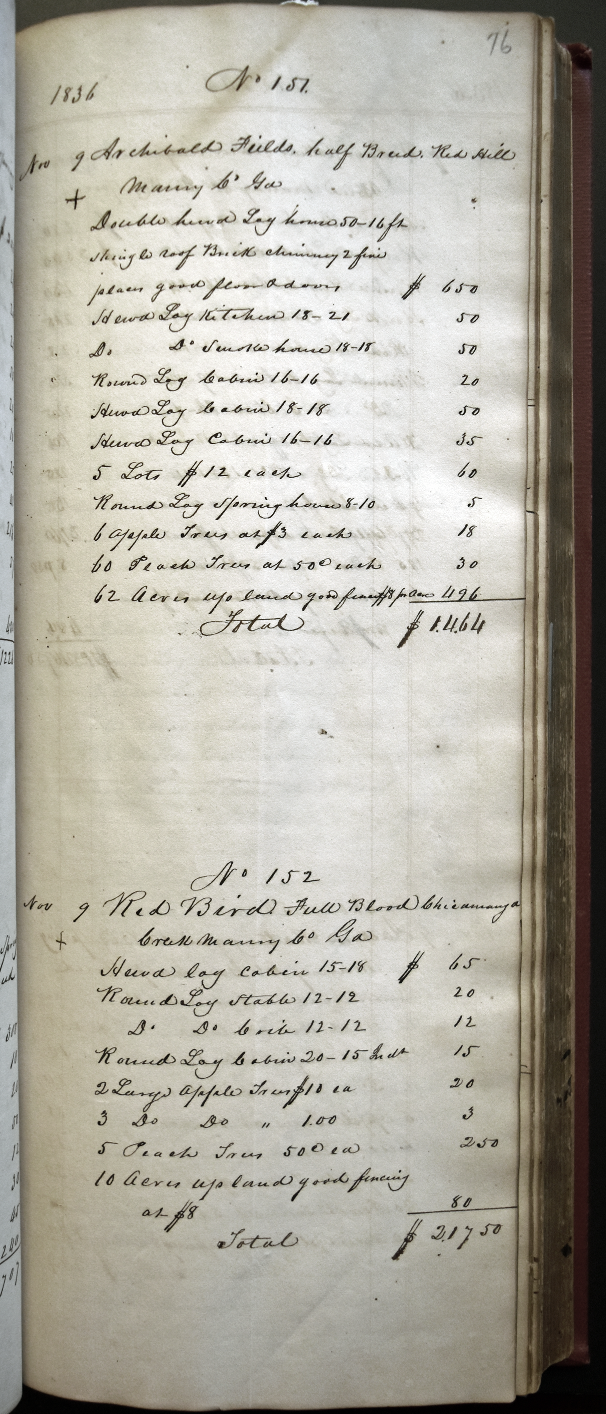 76
1836 No 151.
Nov 9 Archibald Fields, half Breed, Red Hill
+ Murry Co Ga
Double hewd Log house 50-16 ft
shingle roof Brick chimney 2 fire
places good floor & doors $ 650
Hewd Log Kitchen 18-21 50
Do Do Smoke house 18-18 50
Round Log Cabin 16-16 20
Hewd Log Cabin 18-18 50
Hewd Log Cabin 16-16 35
5 Lots $12 each 60
Round Log Spring house 8-10 5
6 Apple Trees at $3 each 18
60 Peach Trees at 50c each 30
62 Acres up land good fence $8 pr Acre 496
Total $ 1464
No 152
Nov 9 Red Bird. Full Blood Chicamauga
+ Creek Murry Co Ga
Hewd log cabin 15-18 $ 65
Round Log Stable 12-12 20
Do Do Crib 12-12 12
Round Log Cabin 20-15 15
2 Large Apple Trees $10 ea 20
3 Do Do " 1.00 3
5 Peach Trees 50c ea 2 50
10 Acres up land good fencing
at $8 80
Total $ 217 50